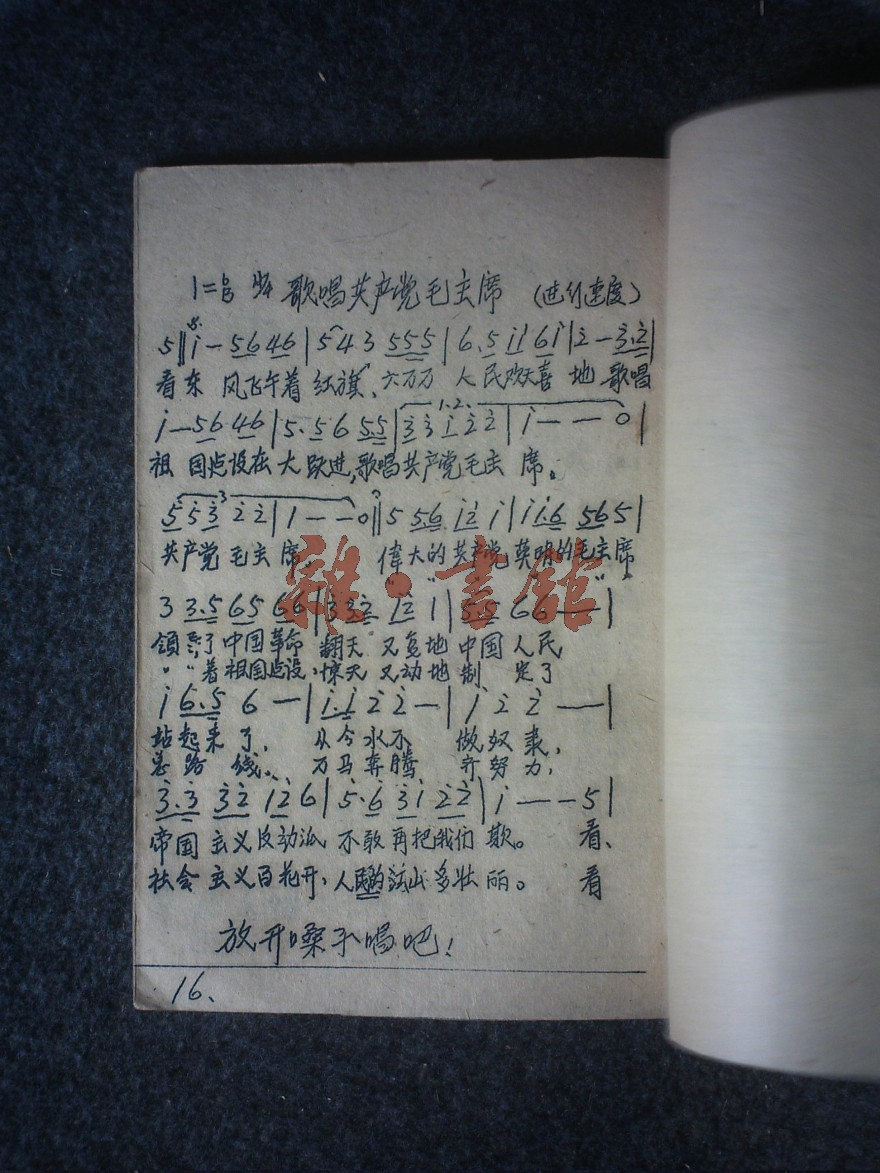 1=ᵇB 4/4 歌唱共产党毛主席 (进行速度)
5‖i — 56 46 | 5 4 3 555 | 6.5 ii 6i | 2 — 3.2 |
看东 风飞午着 红旗、六万万 人民欢天喜 地 歌唱
i — 56 46 | 5. 56 55 | 3 3 i 2 2 | i — — 0 |
1.2.
祖 国建设在 大跃进,歌唱共产党毛主 席。
3
5 5 3 2 2 | 1 — — 0 ‖ 5 56 i2 i | i i.6 56 5 |
共产党 毛主 席。 偉大的 共产党 英明的毛主席
3 3.5 65 66 | 332 12 1 | 5.5 6 6 — |
領导了 中国革命 翻天 又复地 中国 人民
" " 着祖国建设,惊天 又动地 制 定了
i 6.5 6 — | i.i 2 2 — | i 2 2 — |
站起来 了, 从今永不 做奴隶,
总路 线。 万马奔腾 齐努力,
3.3 32 i2 6 | 5.6 3i 22 | i — — 5 |
帝国 主义反动派 不敢再把我们 欺。 看、
社会 主义百花开、人民的江山多壮 丽。 看
放开嗓子唱吧!
16、
雜·書舘